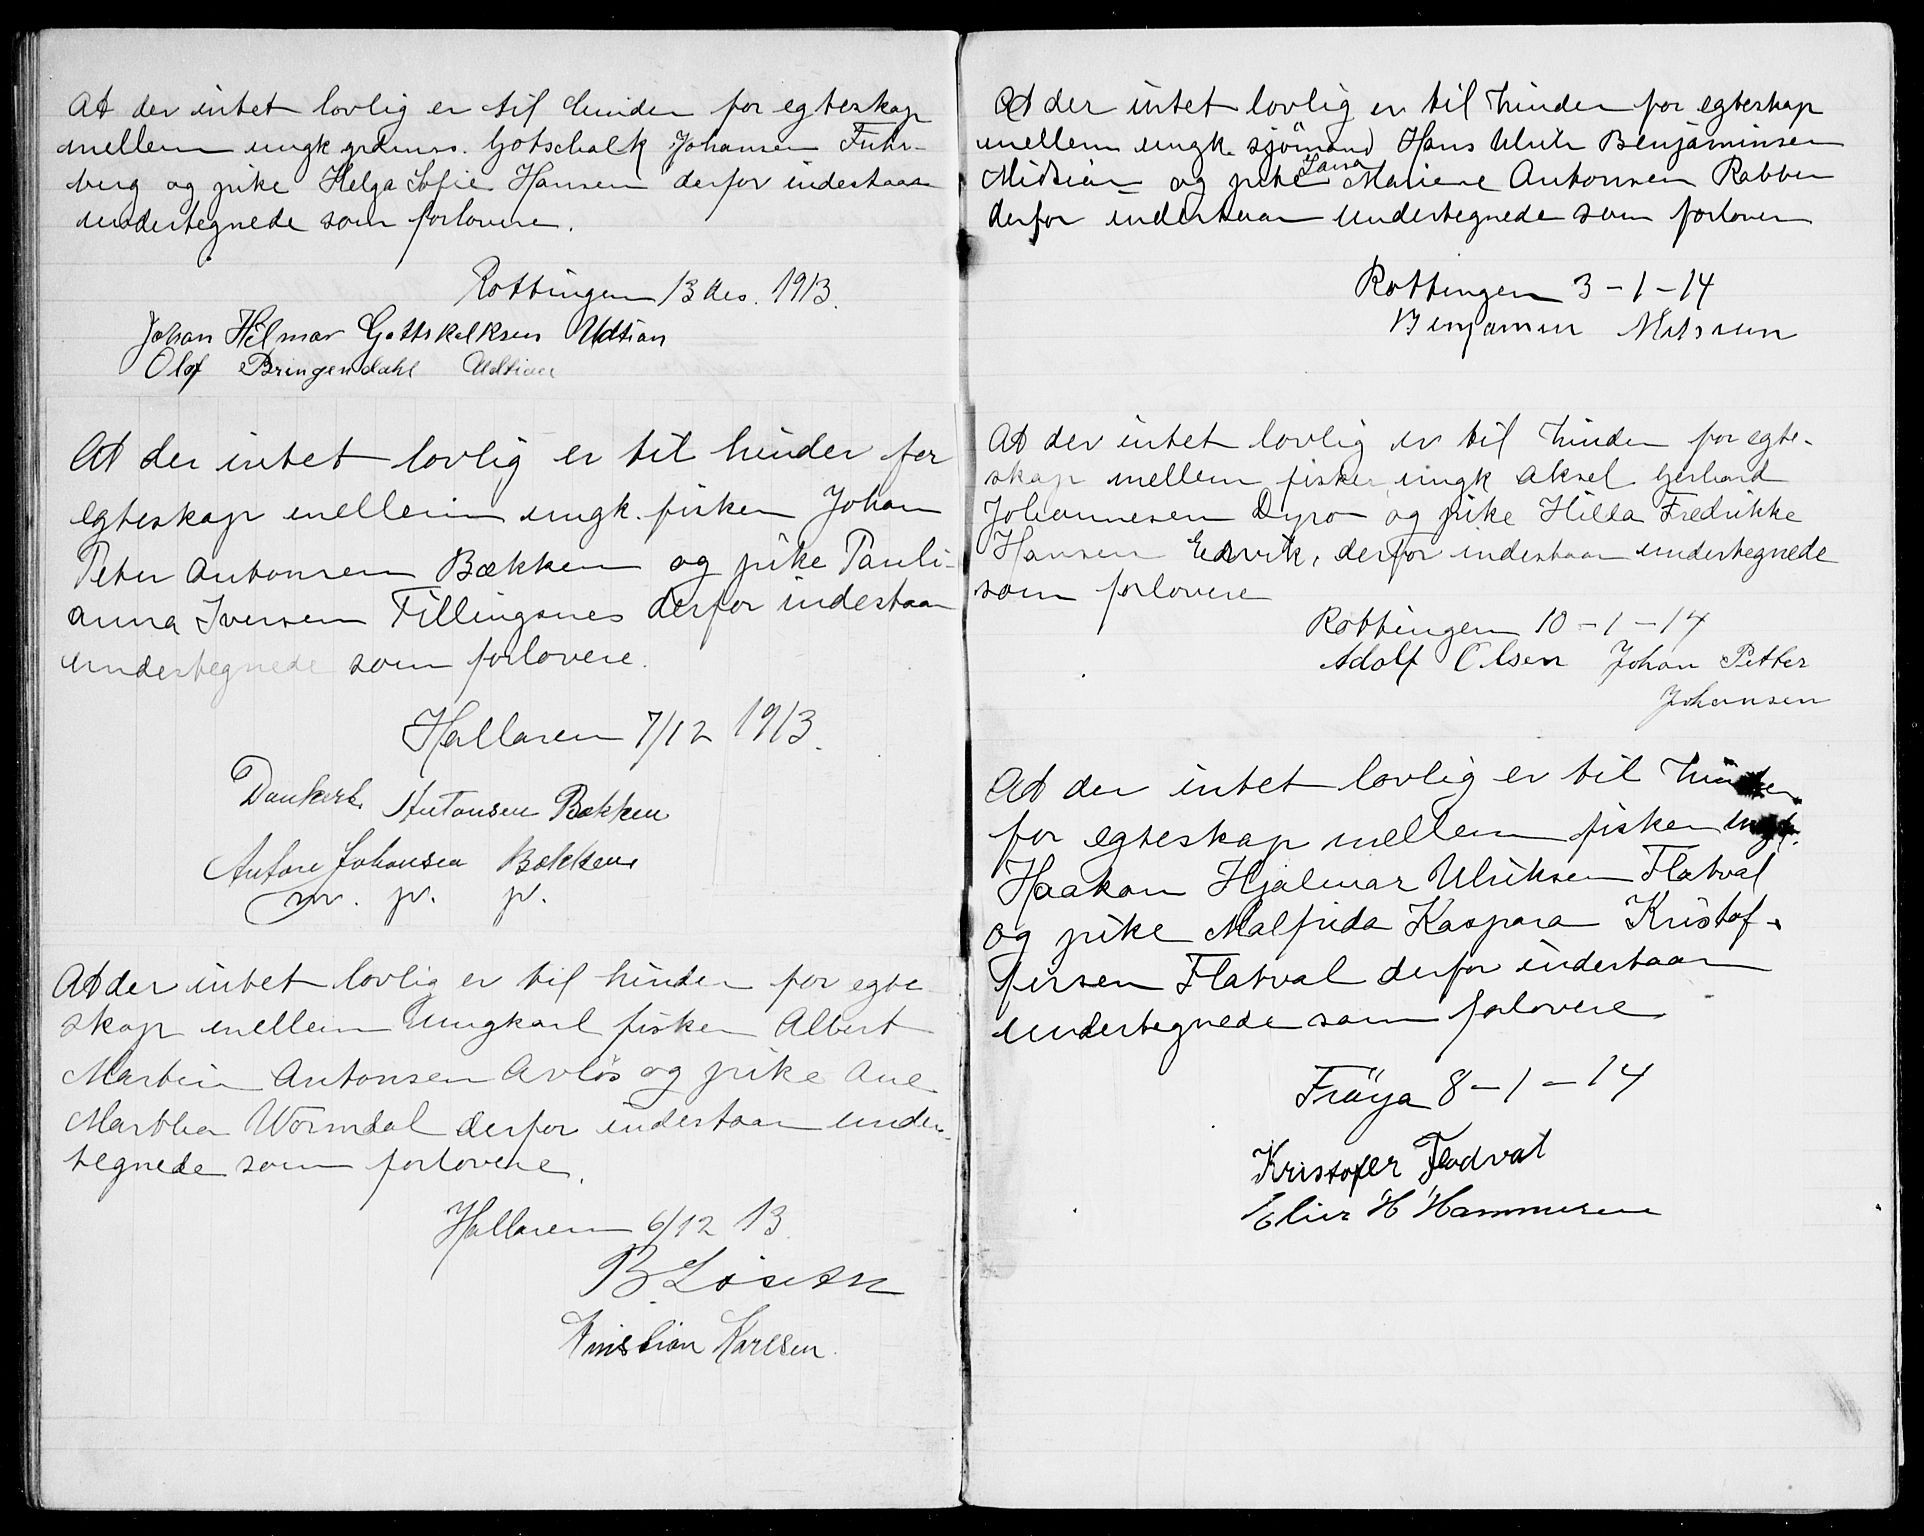 At der intet lovlig er til hinder for egteskap
mellem ungk grdmrs. Gotschalk Johansen Fuhr-
berg og pike Helga Sofie Hansen derfor indestaar
undertegnede som forlovere.
Rottingen 13 des. 1913.
Johan Hilmar Gottskalksen Udtian
Olaf Bringendahl Udtian
At der intet lovlig er til hinder for
egteskap mellem ungk. fisker Johan
Peter Antonsen Bækken og pike Pauli-
anna Iversen Fillingsnes derfor indestaar
undertegnede som forlovere.
Hallaren 7/12 1913.
Dankert Antonsen Bekken
Anton Johansen Bekken
m. p. p.
At der intet lovlig er til hinder for egte
skap mellem Ungkarl fisker Albert
Martin Antonsen Avløs og pike Ane
Martha Wormdal derfor indestaar under-
tegnede som forlovere.
Hallaren 6/12 13.
B. Løseth
Kristian Karlsen.
At der intet lovlig er til hinder for egteskap
mellem ungk. sjömand Hans Ulrik Benjaminsen
Midsian og pike Lava Mariene Antonsen Rabben
derfor indestaar undertegnede som forlover
Rottingen 3-1-14
Benjamin Mitsiun
At der intet lovlig er til hinder for egte-
skap mellem fisker, ungk Aksel Gerhard
Johannesen Dyrø og pike Hilda Fredrikke
Hansen Edsvik, derfor indestaar undertegnede
som forlovere
Rottingen 10-1-14
Adolf Olsen Johan Petter
Johansen
At der intet lovlig er til hinder
for egteskap mellem fisker ungk.
Haakon Hjalmar Ulriksen Flatval
og pike Malfrida Kaspara Kristof-
fersen Flatval derfor indestaar
undertegnede som forlovere
Fröya 8-1-14
Kristofer Flodval
Elier H Hammersen